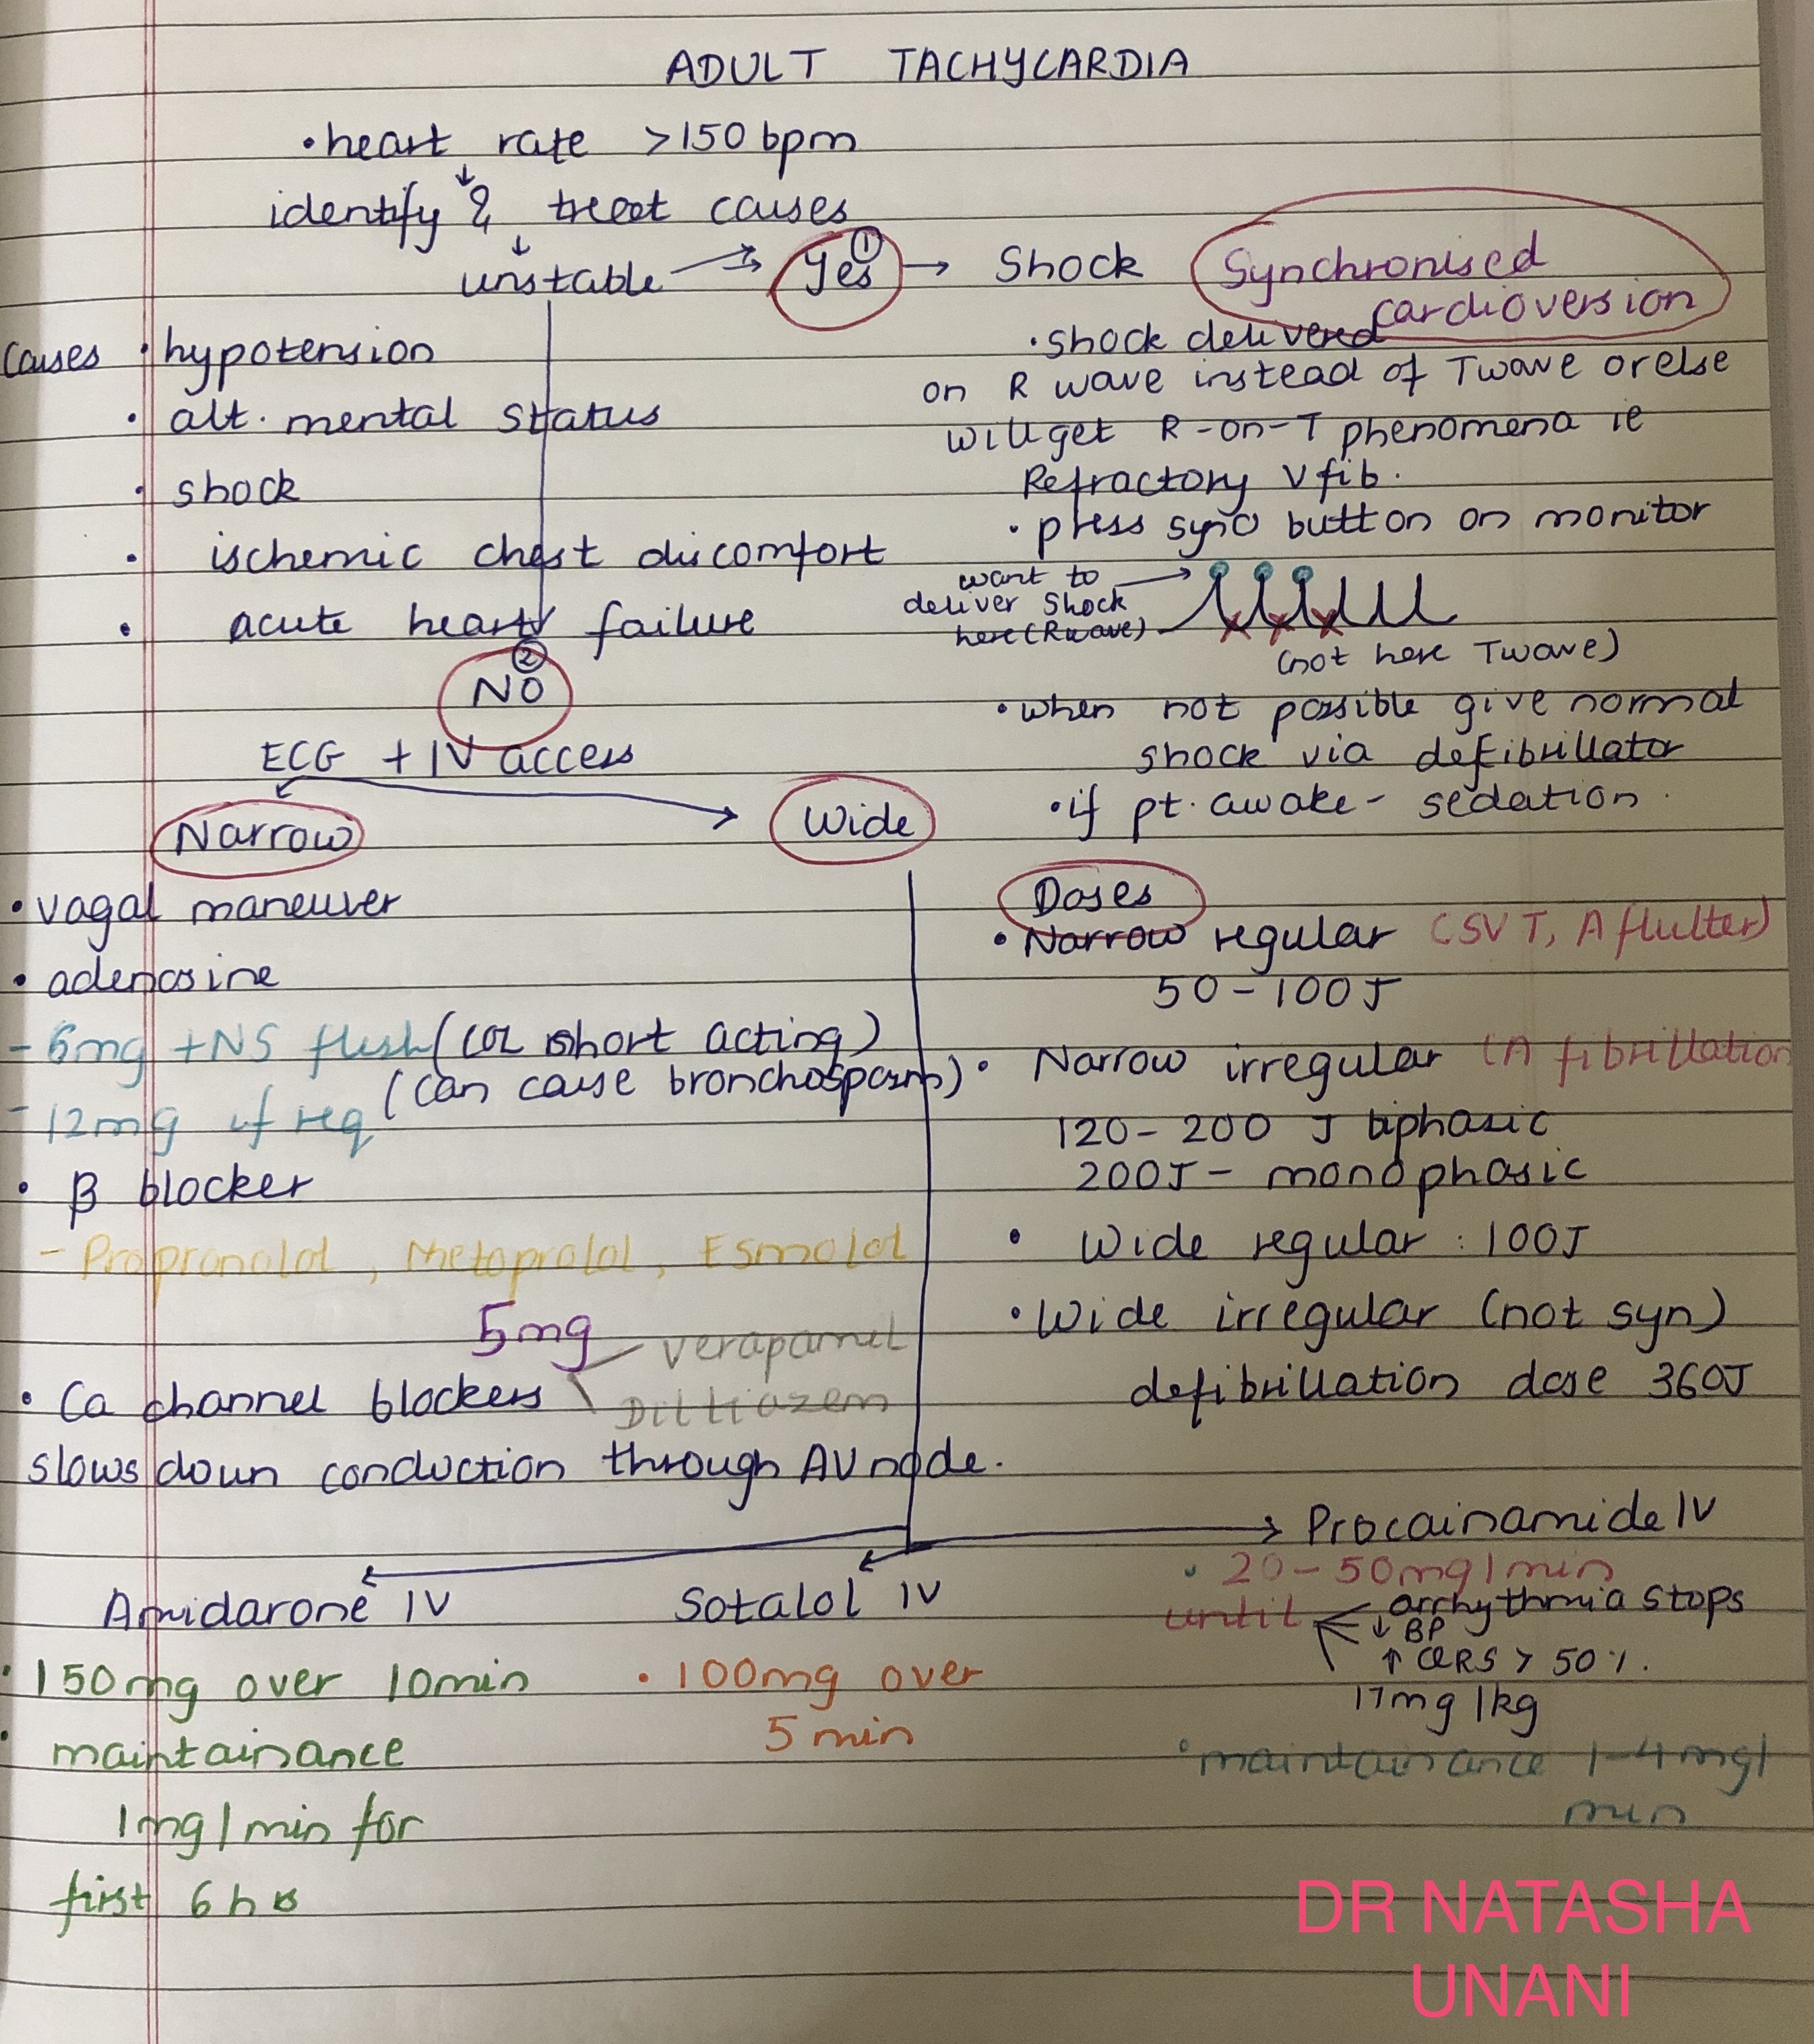 ADULT TACHYCARDIA
• heart rate >150 bpm
↓
identify & treat causes
↓
unstable → Yes ① → Shock
Synchronised
cardioversion
• shock delivered
on R wave instead of T wave or else
will get R-on-T phenomena ie
Refractory V fib.
• press sync button on monitor
want to
deliver shock
here (R wave)
(not here T wave)
• when not possible give normal
shock via defibrillator
• if pt. awake - sedation.
Causes • hypotension
• alt. mental status
• shock
• ischemic chest discomfort
• acute heart failure
②
NO
ECG + IV access
Narrow
Wide
• vagal maneuver
• adenosine
- 6mg + NS flush (coz short acting)
(can cause bronchospasm)
- 12mg if req
• β blocker
- Propranolol, Metoprolol, Esmolol
5mg
• Ca channel blockers
verapamil
Diltiazem
slows down conduction through AV node.
Doses
• Narrow regular (SVT, A flutter)
50-100J
• Narrow irregular (A fibrillation
120-200 J biphasic
200J - monophasic
• Wide regular : 100J
• Wide irregular (not syn)
defibrillation dose 360J
Amidarone IV
• 150mg over 10min
• maintainance
1mg/min for
first 6 hrs
Sotalol IV
• 100mg over
5 min
→ Procainamide IV
• 20-50mg/min
until
arrhythmia stops
↓ BP
↑ QRS > 50%.
17mg/kg
• maintainance 1-4mg/
min
DR NATASHA
UNANI